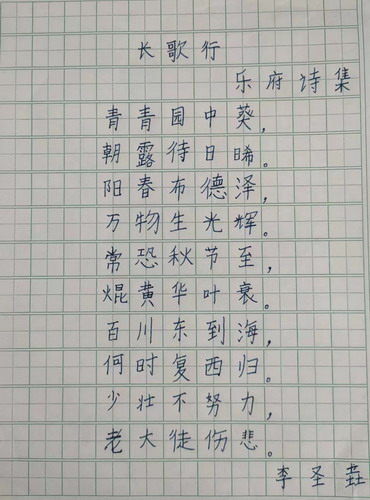 长歌行
乐府诗集
青青园中葵，
朝露待日晞。
阳春布德泽，
万物生光辉。
常恐秋节至，
焜黄华叶衰。
百川东到海，
何时复西归。
少壮不努力，
老大徒伤悲。
李圣